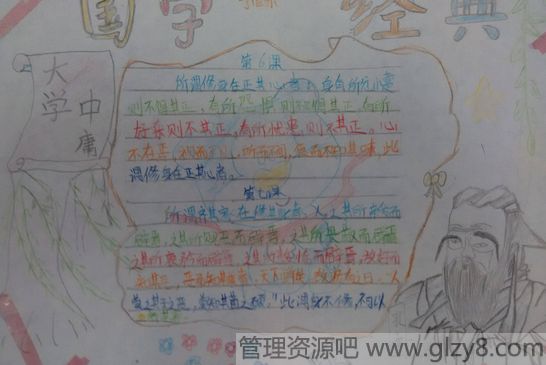 国学 经典
大学
中庸
第6课
所谓修身在正其心者,身有所
则不得其正,有所恐惧,则不得其正,有所
好乐则不其正,有所忧患,则不其正。心
不在焉,视而不见,听而不闻,食而不知其味,此
谓修身在正其心者。
第七课
所谓齐其家在修其身者,人之其所亲爱而
辟焉,之其所贱恶而辟焉,之其所畏敬而辟焉
之其所哀矜而辟焉,之其所敖惰而辟焉,故好而
知其恶,恶而知其美者,天下鲜矣,故谚有之曰,"人
莫之其子之恶,莫知其苗之硕,"此谓身不修,不可以
管理资源吧 www.glzy8.com